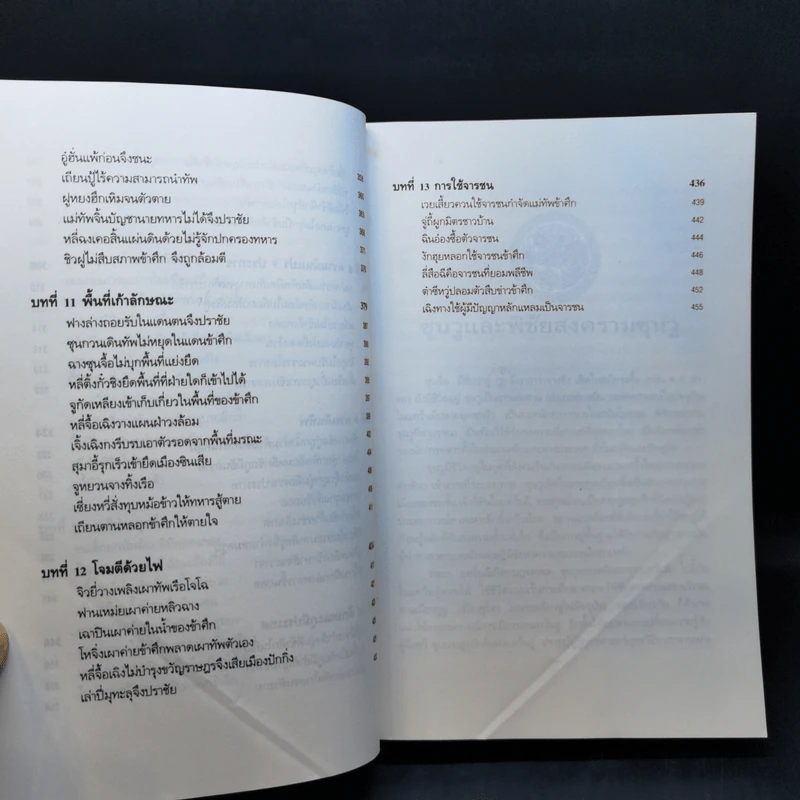 อู่ฮั่นแพ้ก่อนจึงชนะ
เถียนปู้ไร้ความสามารถนำทัพ
ฝูหยงฮึกเหิมจนตัวตาย
แม่ทัพจิ้นบัญชานายทหารไม่ได้จึงปราชัย
หลี่ฉงเคอสิ้นแผ่นดินด้วยไม่รู้จักปกครองทหาร
ชิวฝูไม่สืบสภาพข้าศึก จึงถูกล้อมตี
บทที่ 11 พื้นที่เก้าลักษณะ 379
ฟางล่างถอยรับในแดนตนจึงปราชัย
ซุนกวนเดินทัพไม่หยุดในแดนข้าศึก
ฉางซุนจื้อไม่บุกพื้นที่แย่งยึด
หลี่ติ้งกั๋วชิงยึดพื้นที่ที่ฝ่ายใดก็เข้าไปได้
จูกัดเหลียงเข้าเก็บเกี่ยวในพื้นที่ของข้าศึก
หลี่จื้อเฉิงวางแผนฝ่าวงล้อม
เจิ้งเฉิงกงรีบรบเอาตัวรอดจากพื้นที่มรณะ
สุมาอี้รุกเร็วเข้ายึดเมืองซินเสีย
จูหยวนจางทิ้งเรือ
เซี่ยงหวี่สั่งทุบหม้อข้าวให้ทหารสู้ตาย
เถียนตานหลอกข้าศึกให้ตายใจ
บทที่ 12 โจมตีด้วยไฟ
จิวยี่วางเพลิงเผาทัพเรือโจโฉ
ฟานเหม่ยเผาค่ายหลิวฉาง
เฉาปินเผาค่ายในน้ำของข้าศึก
โหจิ่งเผาค่ายข้าศึกพลาดเผาทัพตัวเอง
หลี่จื้อเฉิงไม่บำรุงขวัญราษฎรจึงเสียเมืองปักกิ่ง
เล่าปี่มุทะลุจึงปราชัย
บทที่ 13 การใช้จารชน 436
เวยเสี้ยวควนใช้จารชนกำจัดแม่ทัพข้าศึก 439
จู่ถี้ผูกมิตรชาวบ้าน 442
ฉินอ๋องซื้อตัวจารชน 444
งักฮุยหลอกใช้จารชนข้าศึก 446
ลี่สือฉีคือจารชนที่ยอมพลีชีพ 448
ต๋าซีหวู่ปลอมตัวสืบข่าวข้าศึก 452
เฉิงทางใช้ผู้มีปัญญาหลักแหลมเป็นจารชน 455